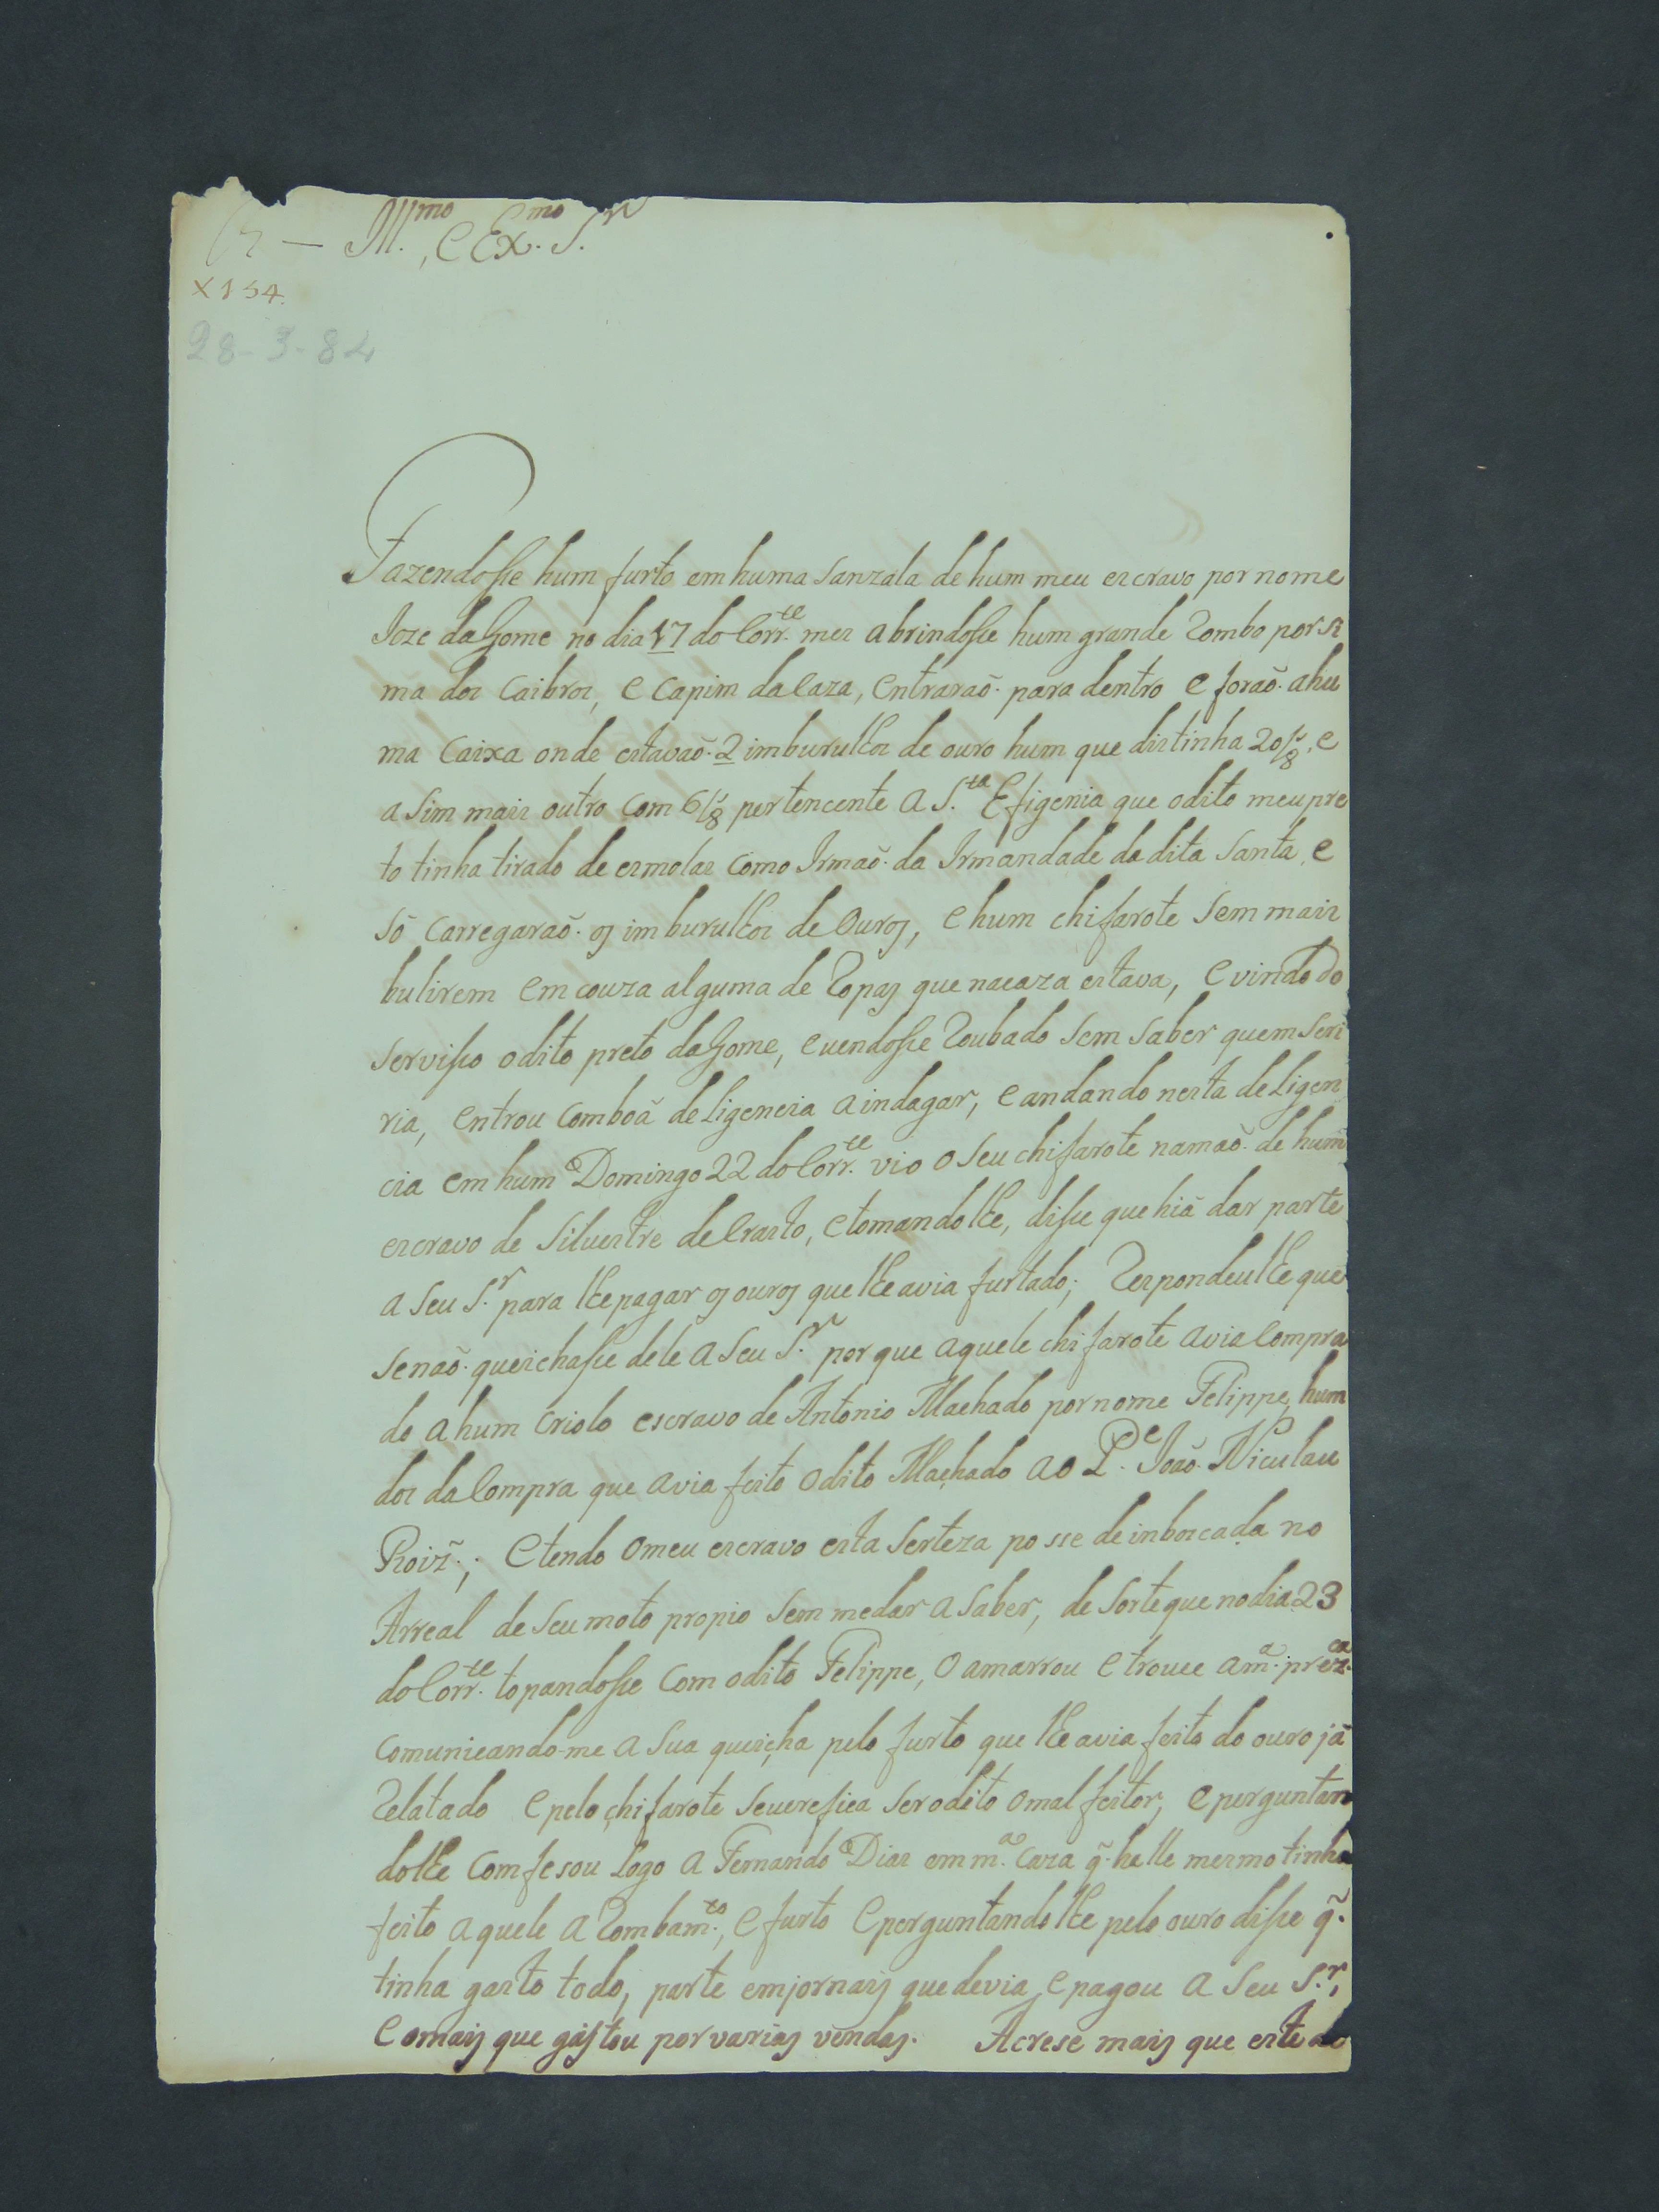 Ill.mo, e Ex.mo S.r
X 154.
28-3-84
Fazendosse hum furto em huma sanzala de hum meu escravo por nome
Joze dagome no dia 17 do Corr.te mes abrindosse hum grande Rombo por si
ma dos Caibros, e Capim da Caza, entrarão para dentro e forão ahu
ma Caixa onde estavão 2 imburulhos de ouro hum que dis tinha 20/8, e
a Sim mais outro Com 6/8 pertencente a S.ta Efigenia que odito meu pre
to tinha tirado de esmolas Como Irmaõ da Irmandade da dita Santa, e
Só Carregaraõ os imburulhos de Ouros, e hum chifarote Sem mais
bulirem em couza alguma de Ropas que nacaza estava, e vindo do
Servisso odito preto dagome, e vendosse Roubado Sem Saber quem Seri
ria, entrou Comboã deligencia aindagar, e andando nesta deLigen
cia em hum Domingo 22 do Corr.te vio o Seu chifarote namaõ de hum
escravo de Silvestre de Crasto, e tomandolhe, disse que hiã dar parte
a Seu S.r para lhe pagar os ouros que lhe avia furtado; Respondeulhe que
Senaõ queichasse dele a Seu S.r por que aquele chifarote avia Compra
do a hum Criolo escravo de Antonio Machado por nome Felippe, hum
dos da Compra que avia feito odito Machado ao P.e Joaõ Niculau
Roiz̃; e tendo omeu escravo esta Serteza posse de inboscada no
Arreal de Seu moto propio Sem me dar a Saber, de Sorte que nodia 23
do Corr.te topandosse Com odito Felippe, o amarrou e trouce am.a prez.ca
Comunicando-me a Sua queicha pelo furto que lhe avia feito do ouro já
Relatado e pelo chifarote Severefica Ser odito omal feitor, e perguntan
dolhe Comfesou Logo a Fernando Dias em m.a Caza q̃ helle mesmo tinha
feito aquele a Rombam.to, e furto e perguntandolhe pelo ouro disse q̃
tinha gasto todo, parte em jornais que devia, e pagou a Seu S.r,
e omais que gastou por varias vendas. Acrese mais que este do